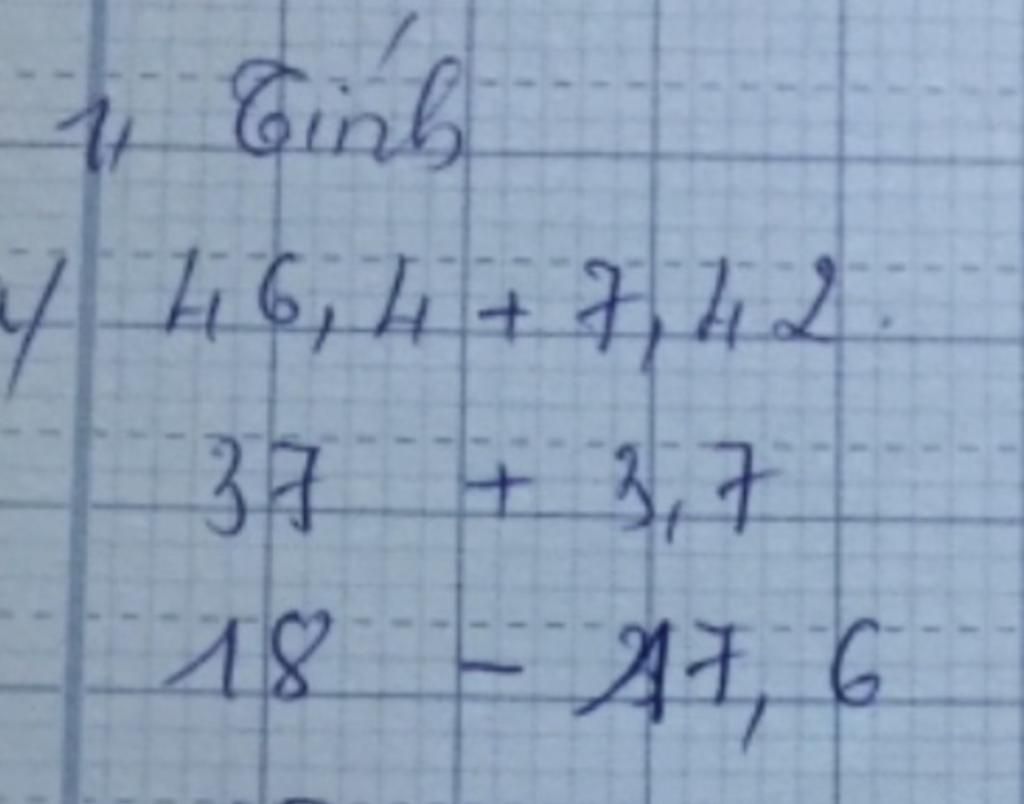 1, Tính
a/ 46,4 + 7,42.
37 + 3,7
18 - 17,6